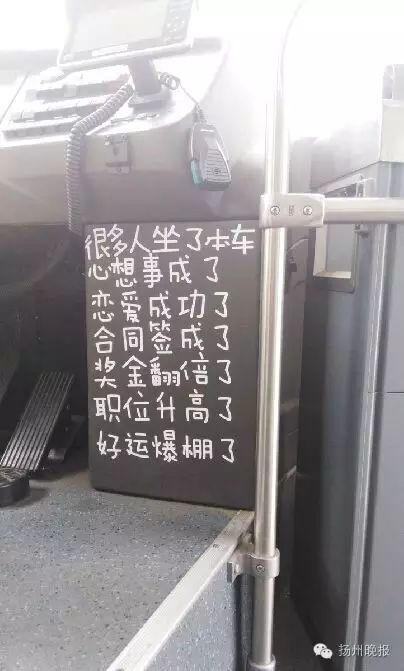 很多人坐了本车
心想事成了
恋爱成功了
合同签成了
奖金翻倍了
职位升高了
好运爆棚了
扬州晚报